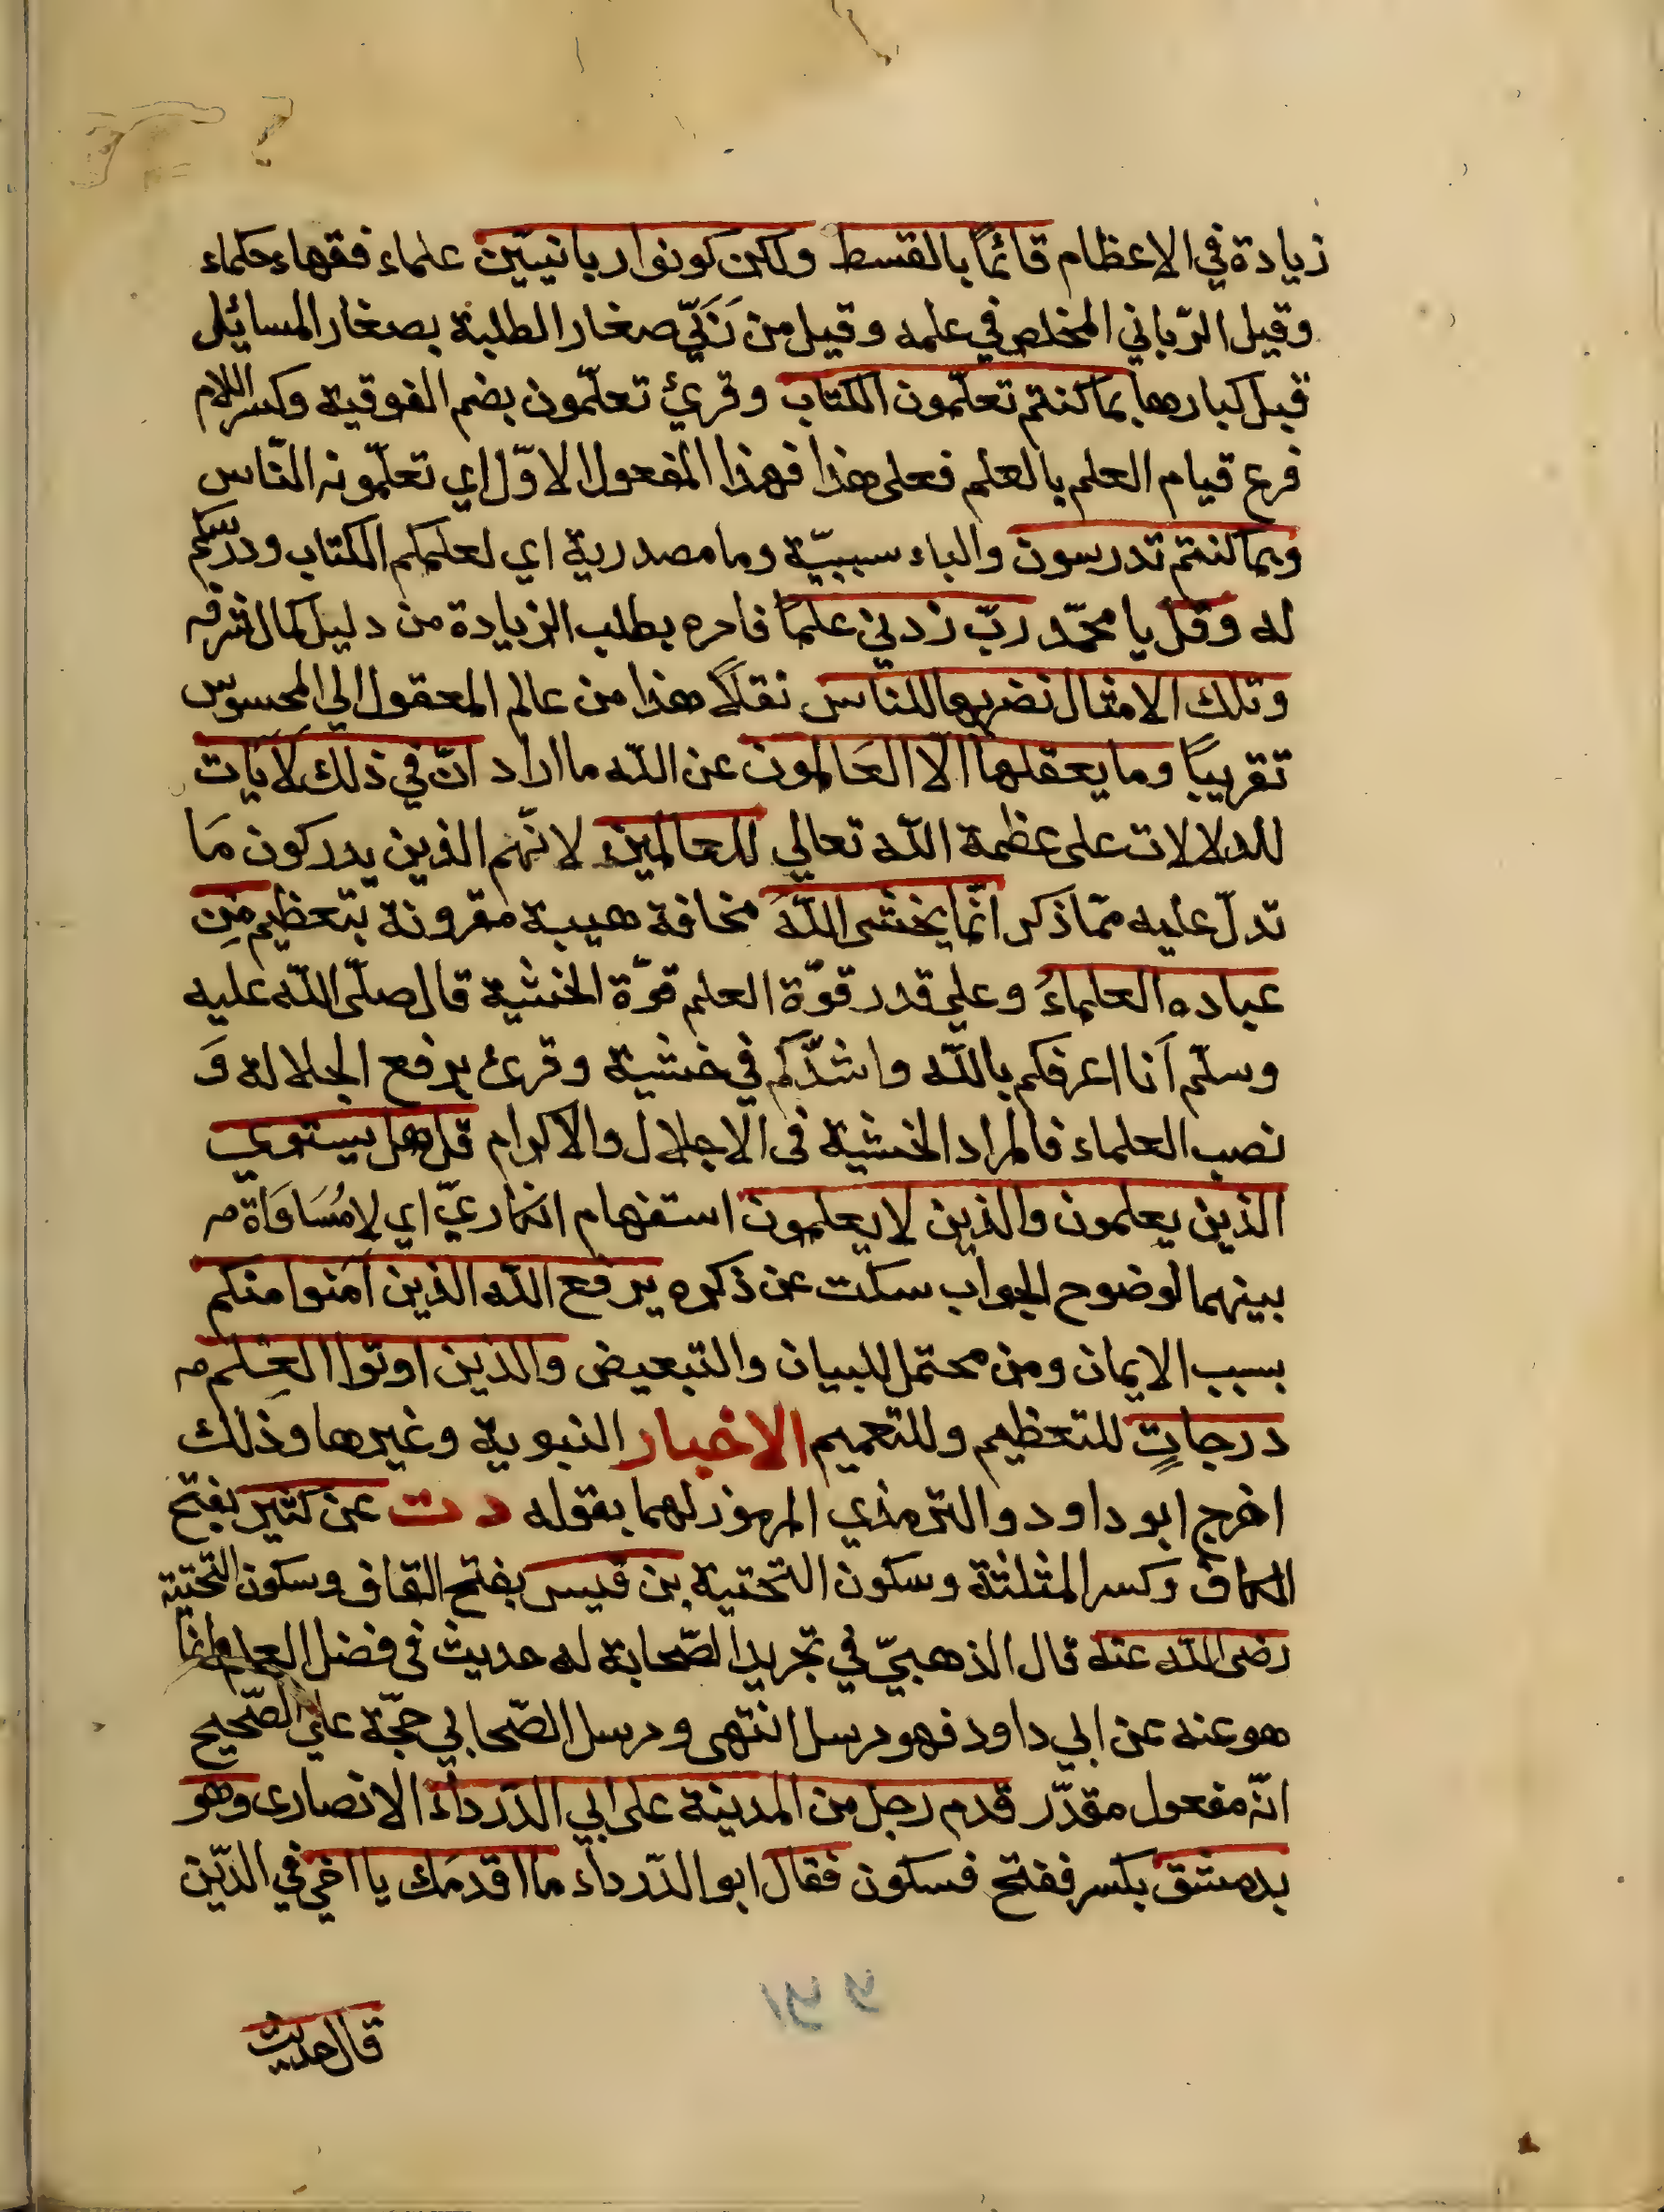 زيادة في الاعظام قائمًا بالقسط ولكن كونوا ربانيين علماء فقهاء حكماء
وقيل الرّباني المخلص في علمه وقيل من يُرَبّي صغار الطلبة بصغار المسائل
قبل كبارها بما كنتم تعلّمون الكتاب وقرئ تعلّمون بضم الفوقية وكسر اللام
فرع قيام العلم بالعلم فعلى هذا فهذا المفعول الاوّل اي تعلّمونه النّاس
وبما كنتم تدرسون والباء سببيّة وما مصدرية اي لعلمكم الكتاب ودرسكم
له وقل يا محمّد ربّ زدني علمًا فامره بطلب الزيادة من دليل كمال شرفه
وتلك الامثال نضربها للناس نقلًا هذا من عالم المعقول الي المحسوس
تقريبًا وما يعقلها الا العَالمون عن الله ما اراد انّ في ذلك لَآيات
للدلالات على عظمة الله تعالي للعالمين لانّهم الذين يدركون مَا
تدلّ عليه ممّا ذكر انّما يخشى اللّهَ مخافة هيبة مقرونة بتعظيم مِن
عباده العلماءُ وعلى قدر قوّة العلم قوّة الخشية قال صلّى الله عليه
وسلّم اَنا اعرفكم بالله واشدّكم في خشية وقرئ برفع الجلالة وَ
نصب العلماء فالمراد الخشية فى الاجلال والاكرام قل هل يستوي
الذين يعلمون والذين لا يعلمون استفهام انكاريّ اي لا مُسَاوَاة
بينهما لوضوح الجواب سكت عن ذكره يرفع الله الذين اَمنوا منكم
بسبب الايمان ومن محتمل للبيان والتبعيض والذين اوتوا العِلم
درجاتٍ للتعظيم وللتعميم الاخبار النبوية وغيرها وذلك
اخرج ابو داود والترمذي المرموز لهما بقوله د ت عن كثير بفتح
الكاف وكسر المثلثة وسكون التحتية بن قيس بفتح القاف وسكون التحتية
رضى الله عنه قال الذهبيّ في تجريد الصّحابة له حديث فى فضل العلم وانما
هو عنه عن ابي داود فهو مرسل انتهى ومرسل الصّحابي حجّة على الصّحيح
انّه مفعول مقدّر قدم رجل من المدينة على ابي الدّرداء الانصارى وهو
بدمشق بكسر ففتح فسكون فقال ابو الدّرداء ما اقدمَك يا اخي في الدّين
قال حديث